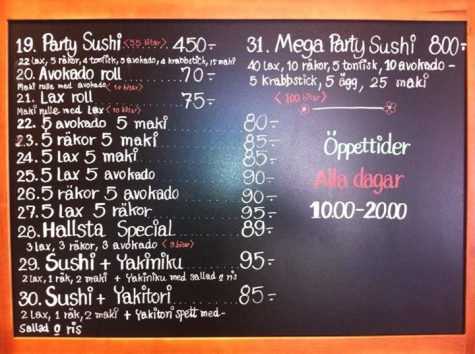 19. Party Sushi <55 bitar> 450:-
22 lax, 5 räkor, 4 tonfisk, 5 avokado, 4 krabbstick, 15 maki
20. Avokado roll 70:-
Maki rulle med avokado <10 bitar>
21. Lax roll 75:-
Maki rulle med Lax <10 bitar>
22. 5 avokado 5 maki 80:-
23. 5 räkor 5 maki 85:-
24. 5 lax 5 maki 85:-
25. 5 lax 5 avokado 90:-
26. 5 räkor 5 avokado 90:-
27. 5 lax 5 räkor 95:-
28. Hallsta Special 89:-
3 lax, 3 räkor, 3 avokado <9 bitar>
29. Sushi + Yakiniku 95:-
2 lax, 1 räk, 2 maki + Yakiniku med sallad o ris
30. Sushi + Yakitori 85:-
2 lax, 1 räk, 2 maki + Yakitori spett med-
sallad o ris
31. Mega Party Sushi 800:-
40 lax, 10 räkor, 5 tonfisk, 10 avokado -
5 krabbstick, 5 ägg, 25 maki
<100 bitar>
Öppettider
Alla dagar
10.00-20.00